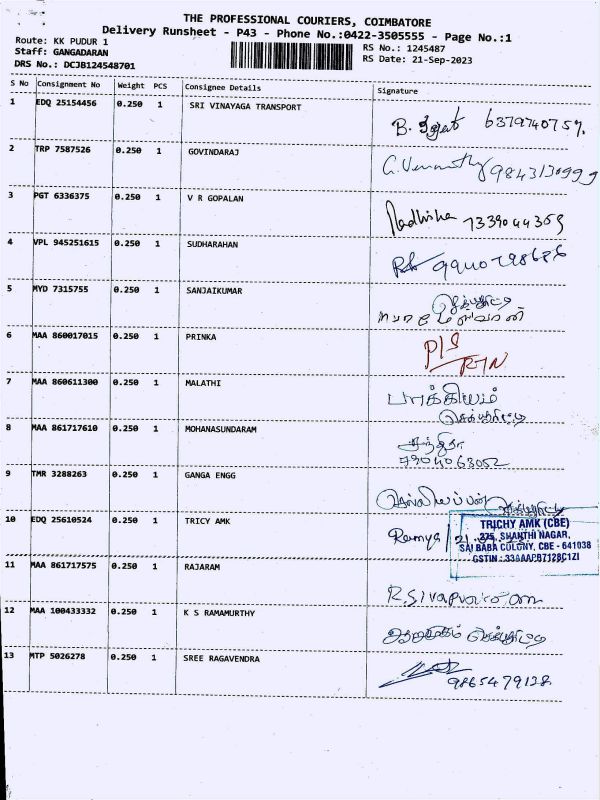 THE PROFESSIONAL COURIERS, COIMBATORE
Delivery Runsheet - P43 - Phone No.:0422-3505555 - Page No.:1
Route: KK PUDUR 1
RS No.: 1245487
Staff: GANGADARAN
RS Date: 21-Sep-2023
DRS No.: DCJB124548701
S No Consignment No Weight PCS Consignee Details Signature
1 EDQ 25154456 0.250 1 SRI VINAYAGA TRANSPORT
B. 6379740757.
2 TRP 7587526 0.250 1 GOVINDARAJ
9843130999
3 PGT 6336375 0.250 1 V R GOPALAN
Radhika 7339044359
4 VPL 945251615 0.250 1 SUDHARAHAN
5 MYD 7315755 0.250 1 SANJAIKUMAR
6 MAA 860017015 0.250 1 PRINKA
P/S
RTN
7 MAA 860611300 0.250 1 MALATHI
பாக்கியம்
செக்யூரிட்டி
8 MAA 861717610 0.250 1 MOHANASUNDARAM
9 TMR 3288263 0.250 1 GANGA ENGG
செல்லியப்பன் செக்யூரிட்டி
10 EDQ 25610524 0.250 1 TRICY AMK
Ramya
TRICHY AMK (CBE)
SHANTHI NAGAR,
SAI BABA COLONY, CBE - 641038
11 MAA 861717575 0.250 1 RAJARAM
12 MAA 100433332 0.250 1 K S RAMAMURTHY
ஆறுமுகம் செக்யூரிட்டி
13 MTP 5026278 0.250 1 SREE RAGAVENDRA
9865479128